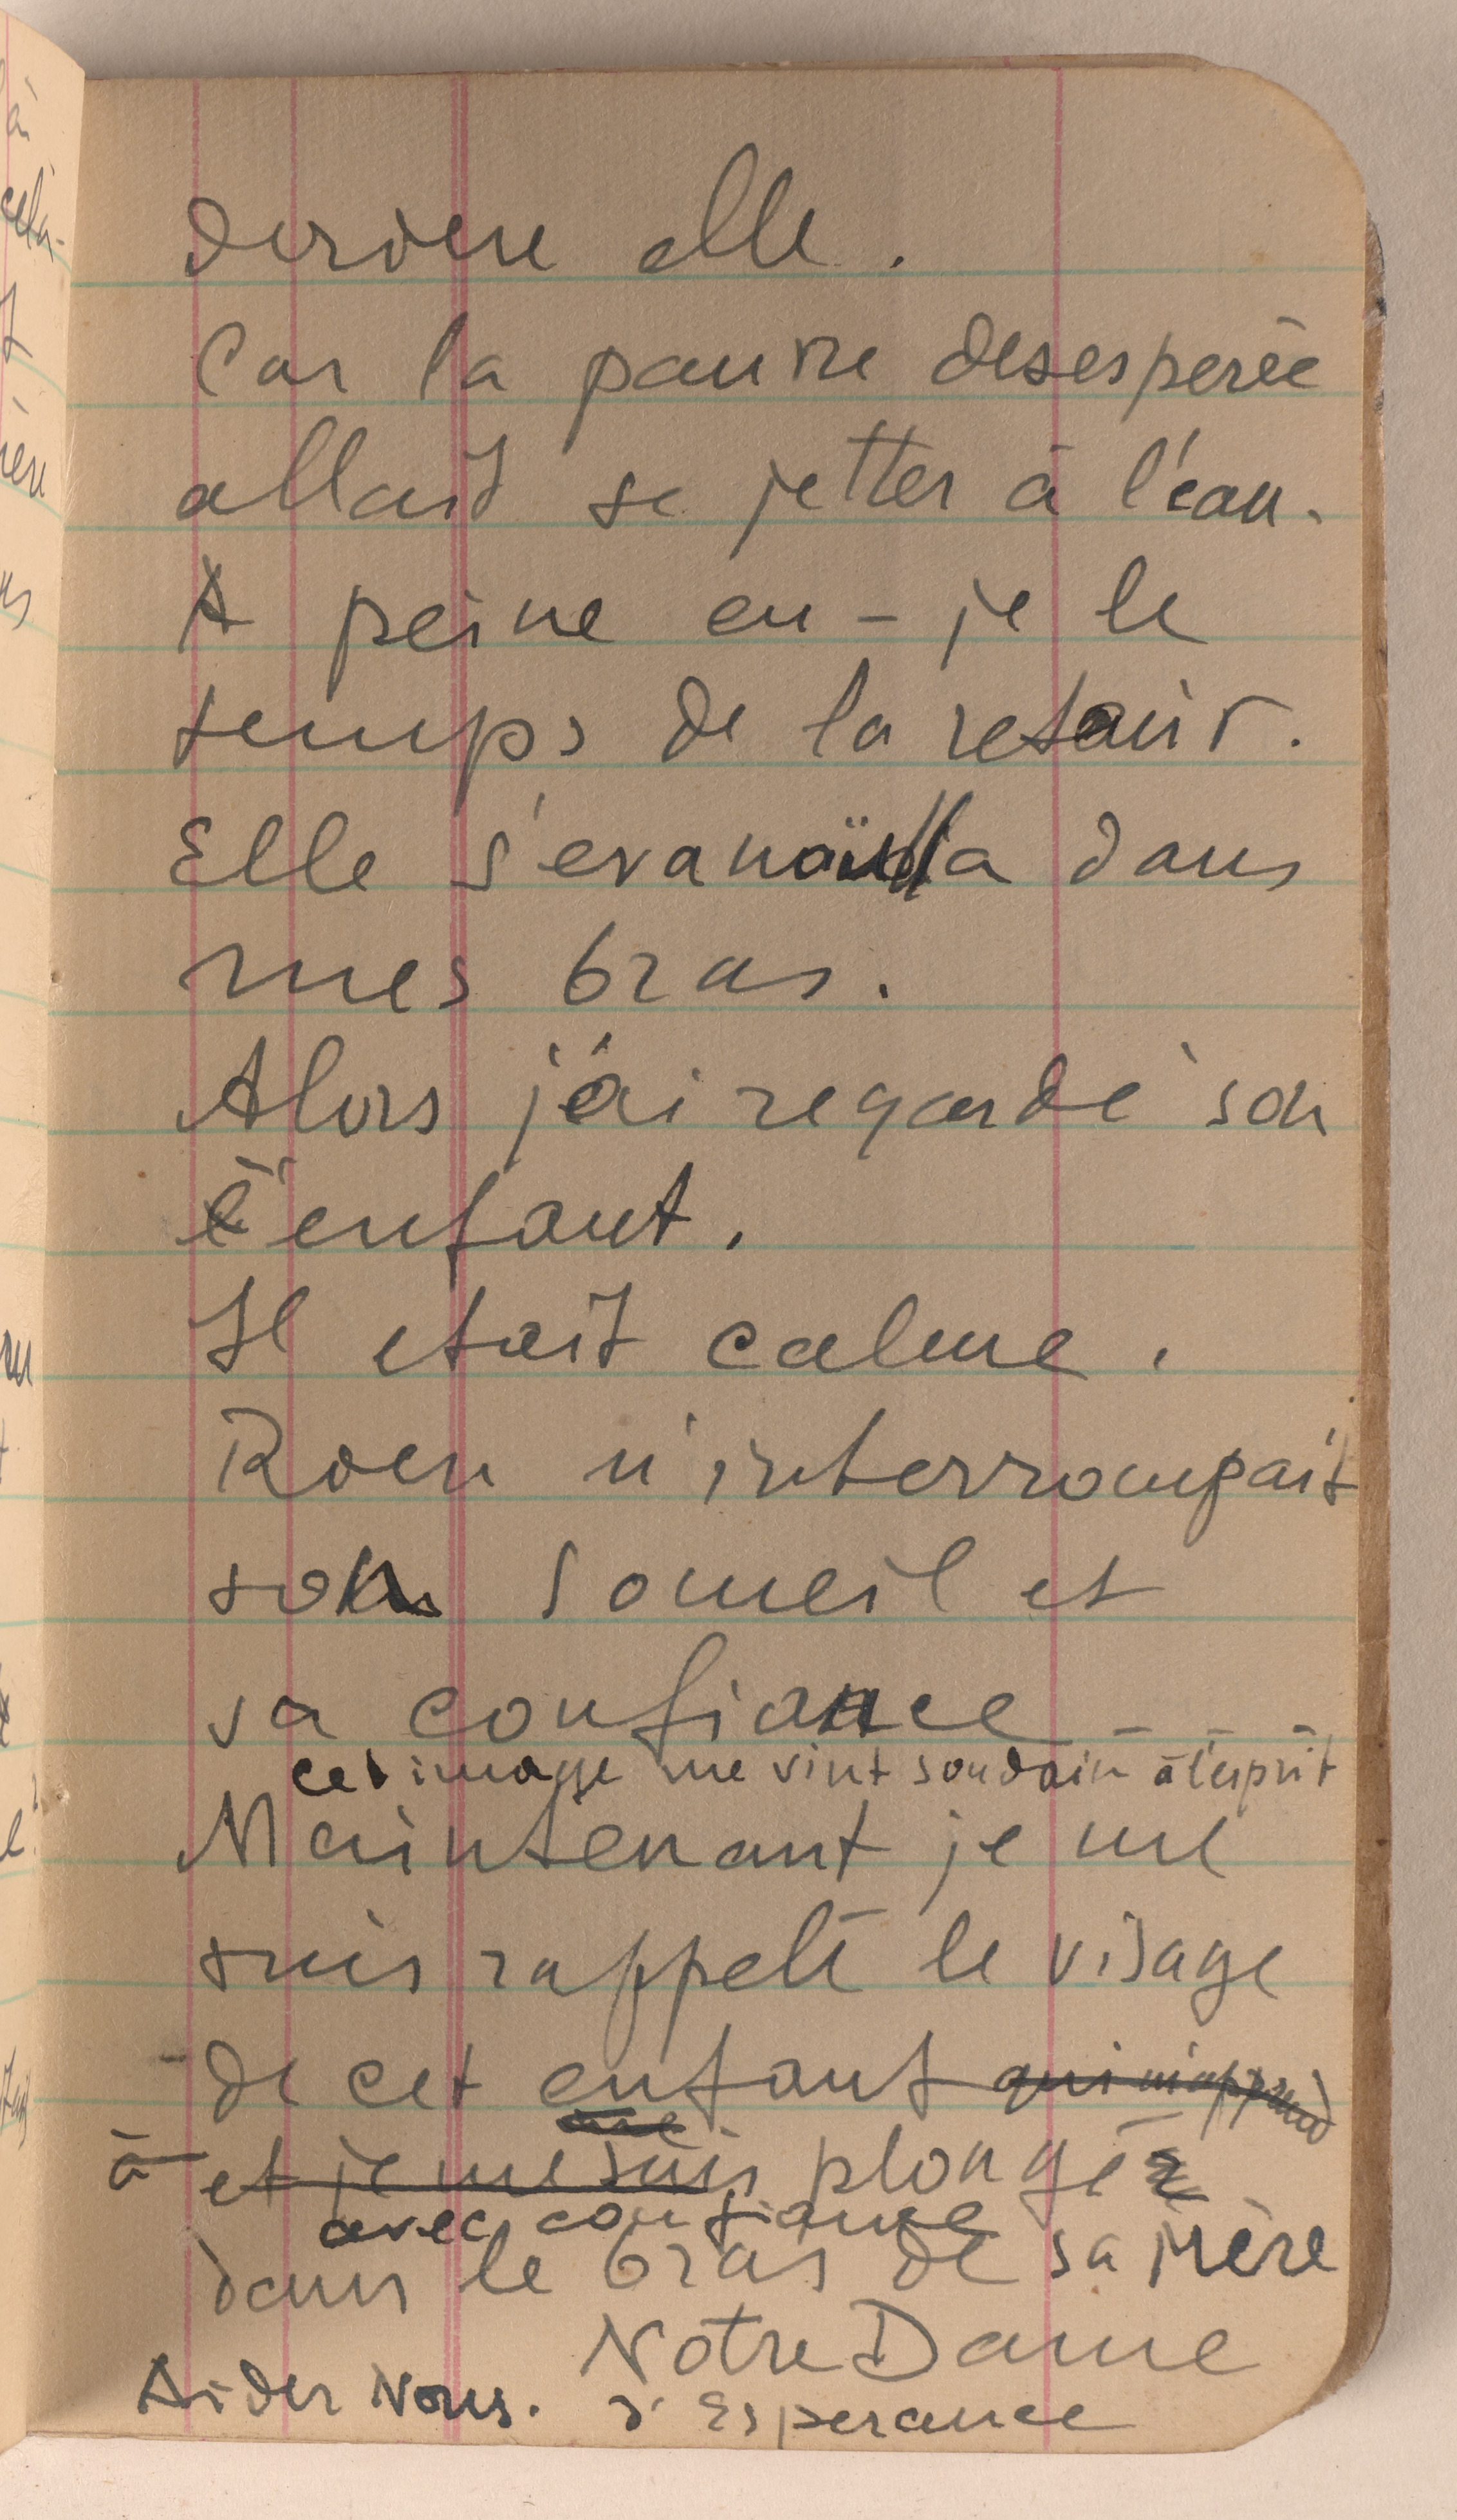 derriere elle.
Car la pauvre desesperée
allait se jetter à l'eau.
A peine eu-je le
temps de la retenir.
Elle s'evanouïa dans
mes bras.
Alors j'ai regardé son
enfant.
Il etait calme.
Rien n'interrompait
son someil et
sa confiance
cet image me vint soudain à l'esprit
Maintenant je me
suis rappelé le visage
de cet enfant qui m'apprend
à et je me suis plongé
avec confiance
dans le bras de sa mère
Notre Dame
Aider Nous. d'Esperance